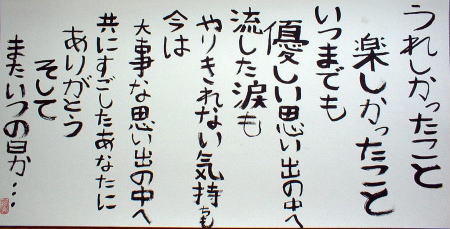 うれしかったこと
楽しかったこと
いつまでも
優しい思い出の中へ
流した涙も
やりきれない気持ちも
今は
大事な思い出の中へ
共にすごしたあなたに
ありがとう
そして
またいつの日か…